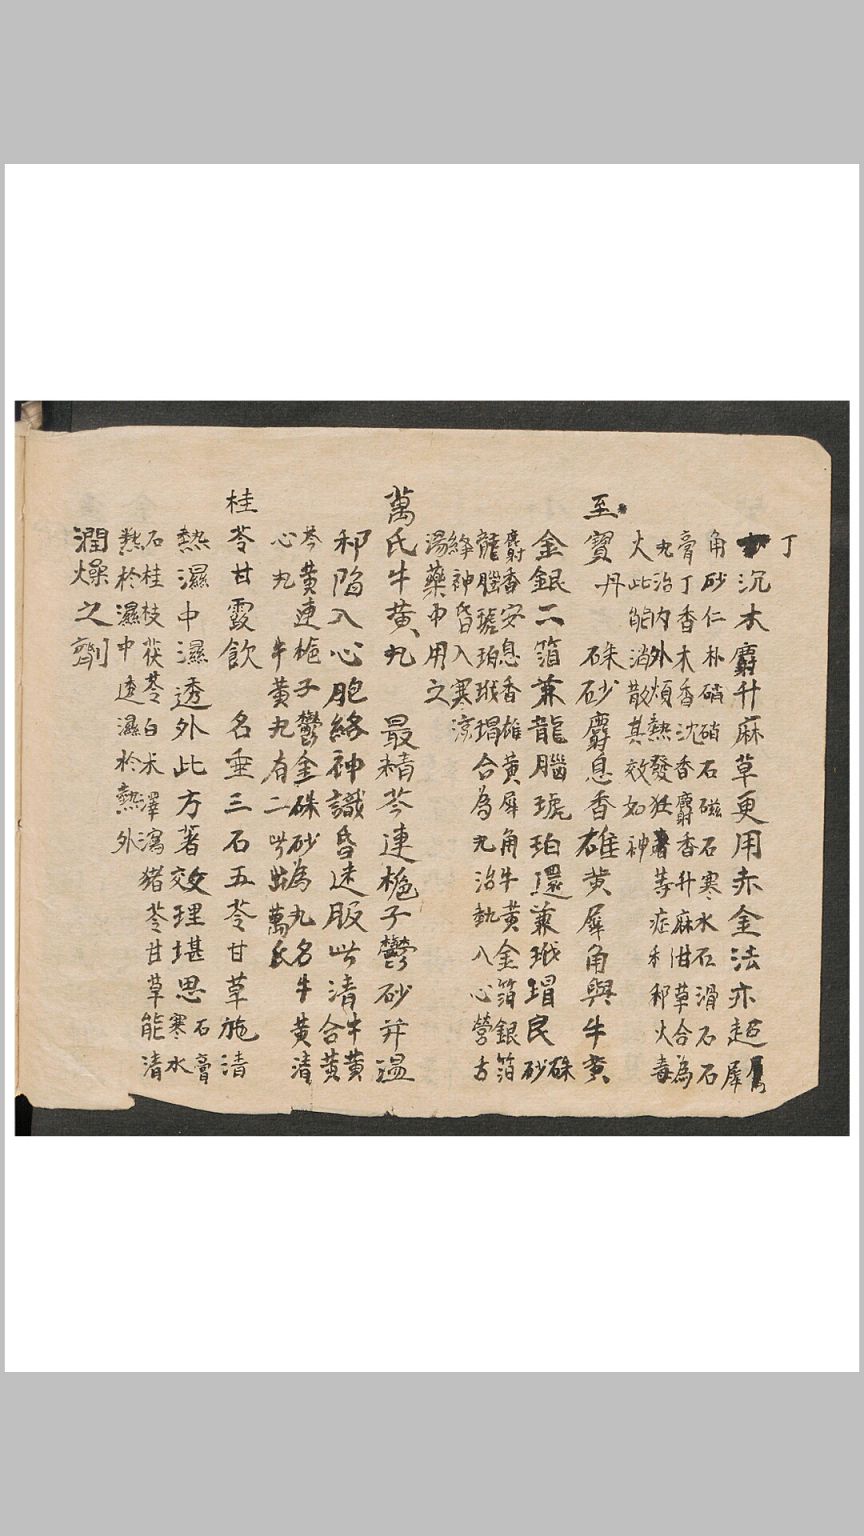 丁
沉木麝升麻草更用赤金法亦超
犀
角砂仁朴硝硝石磁石寒水石滑石石
膏丁香木香沈香麝香升麻甘草合為
丸治內外煩熱發狂等症和邪火毒
火此能消散其效如神
至寶丹 硃砂麝息香雄黃犀角與牛黃
金銀二箔兼龍腦琥珀還兼玳瑁民
硃砂
麝香安息香雄黃犀角牛黃金箔銀箔
龍腦琥珀玳瑁合為丸治熱入心營古
絳神昏入寒涼
湯藥中用之
萬氏牛黃丸 最精芩連梔子鬱砂并溫
邪陷入心胞絡神識昏迷服此清
牛黃合黃
芩黃連梔子鬱金硃砂為丸名牛黃清
心丸 牛黃丸有二此出萬氏
桂苓甘露飲 名垂三石五苓甘草施清
熱濕中濕透外此方著效理堪思
石膏寒水
石桂枝茯苓白朮澤瀉豬苓甘草能清
熱於濕中透濕於熱外
潤燥之劑